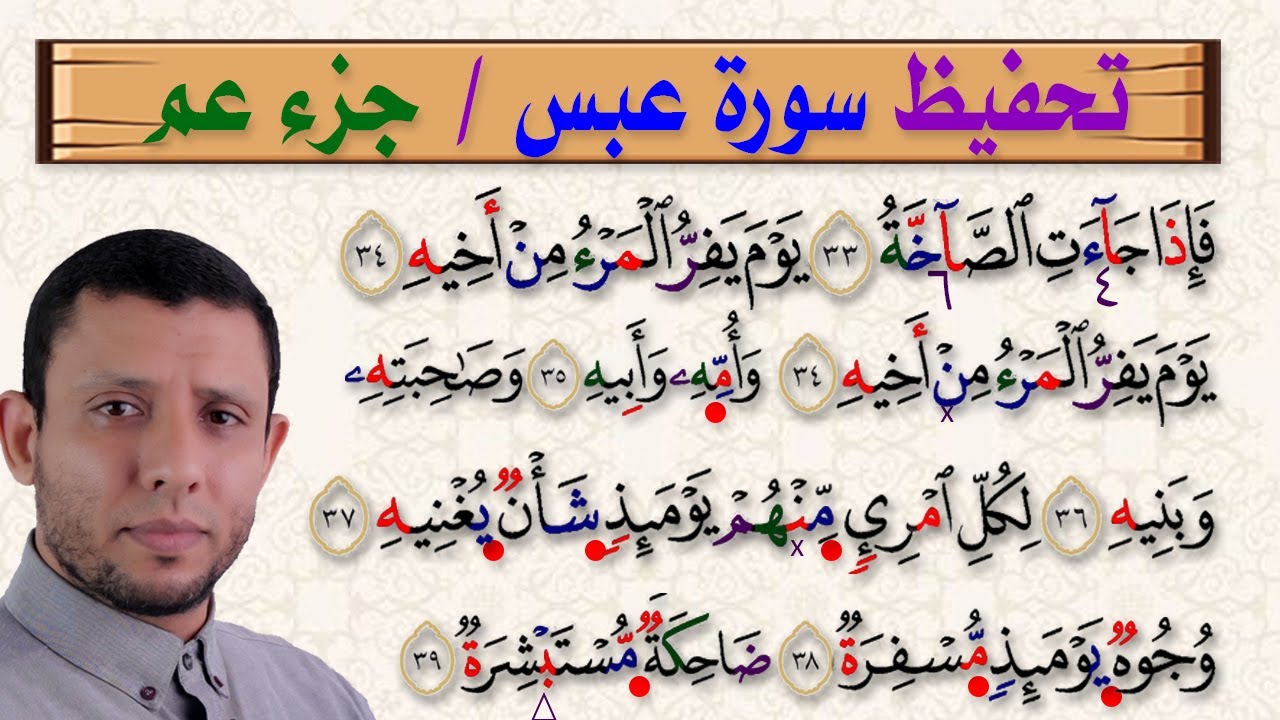 تحفيظ سورة عبس / جزء عم
فَإِذَا جَآءَتِ ٱلصَّآخَّةُ ٣٣ يَوْمَ يَفِرُّ ٱلْمَرْءُ مِنْ أَخِيهِ ٣٤
٤ ٦
يَوْمَ يَفِرُّ ٱلْمَرْءُ مِنْ أَخِيهِ ٣٤ وَأُمِّهِۦ وَأَبِيهِ ٣٥ وَصَٰحِبَتِهِۦ
x
وَبَنِيهِ ٣٦ لِكُلِّ ٱمْرِئٍ مِّنْهُمْ يَوْمَئِذٍ شَأْنٌ يُغْنِيهِ ٣٧
x
وُجُوهٌ يَوْمَئِذٍ مُّسْفِرَةٌ ٣٨ ضَاحِكَةٌ مُّسْتَبْشِرَةٌ ٣٩